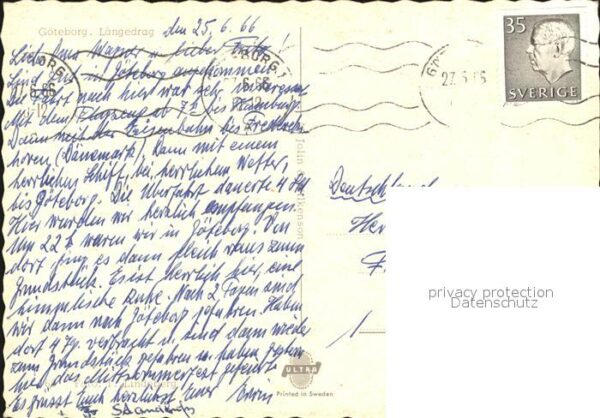 Göteborg. Långedrag
den 25.6.66
35
SVERIGE
27.6.66
in Göteborg angekommen
Die Fahrt nach hier war sehr
Mit dem Flugzeug ab bis Hamburg.
Dann mit der Eisenbahn bis Frederiks-
horen (Dänemark) Dann mit einem
herrlichen Schiff, bei herrlichem Wetter,
bis Göteborg. Die Überfahrt dauerte 4 Std
Hier wurden wir herzlich empfangen.
Um 22 h waren wir in Göteborg. Von
dort ging es dann gleich raus zum
Grundstück. Es ist herrlich hier, eine
himmlische Ruhe. Nach 2 Tagen sind
wir dann nach Göteborg gefahren. Haben
dort 4 Tg. verbracht u. sind dann wieder
zum Grundstück gefahren u. haben gestern
hier das Mittsommerfest gefeiert.
Es grüsst Euch herzlichst Eure Erni
Deutschland
Her
privacy protection
Datenschutz
ULTRA
Printed in Sweden